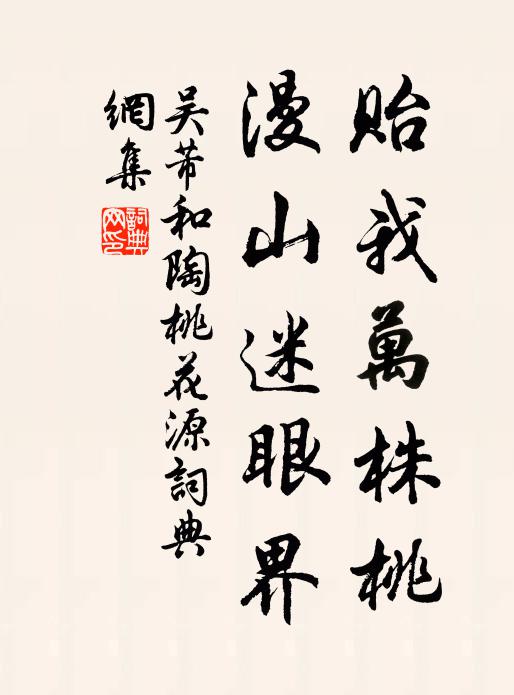 貽我萬株桃
漫山迷眼界
吴芾和陶桃花源詞典
網集
詞典
网印